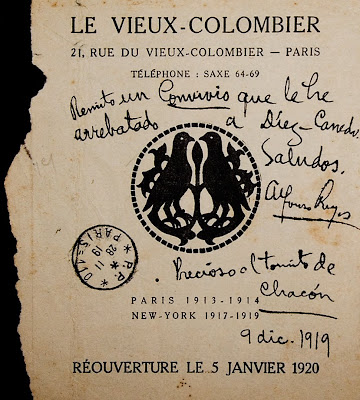 LE VIEUX-COLOMBIER
21, RUE DU VIEUX-COLOMBIER — PARIS
TÉLÉPHONE : SAXE 64-69
Remito un Convivio que le he
arrebatado a Díez-Canedo.
Saludos.
Alfonso Reyes
PARIS
28 11 19
Precioso el tomito de
Chacón
PARIS 1913-1914
NEW-YORK 1917-1919
9 dic. 1919
RÉOUVERTURE LE 5 JANVIER 1920